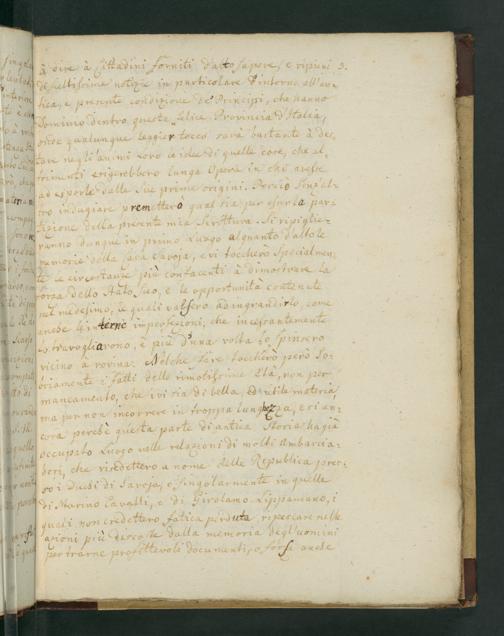 à dire à Cittadini forniti d'alto sapere, e ripieni 3.
di sceltissime notizie in particolare d'intorno all'an-
tica, e presente condizione de' Principi, che hanno
Dominio dentro questa felice Provincia d'Italia,
onde qualunque leggier tocco sarà bastante à des-
tare negli animi loro le idee di quelle cose, che al-
trimenti esigerebbero lunga Opera in chi avesse
ad esporle dalle sue prime origini. Perciò senz'al-
tro indugiare premetterò qual sia per esser la par-
tizione della presente mia Scrittura. Si ripiglie-
ranno dunque in primo luogo alquanto dall'alto le
memorie della Casa Savoja, e vi toccherò specialmen-
te le circostanze più confacenti à dimostrare la
forza dello Stato suo, e le opportunità contenute
nel medesimo, le quali valsero ad ingrandirlo, come
anche le interne imperfezioni, che incessantemente
lo travagliarono, e più d'una volta lo spinsero
vicino a rovina. Nel che fare toccherò però so-
briamente i fatti delle rimotissime Età, non per
mancamento, che vi sia di bella, ed utile materia,
ma per non incorrere in troppa lunghezza, e si an-
cora perchè questa parte di antica Storia ha già
occupato luogo nelle relazioni di molti Ambascia-
dori, che risedettero a nome della Repubblica pres-
so i Duchi di Savoja, e singolarmente in quelle
di Marino Cavalli, e di Girolamo Lippomano, i
quali non credettero fatica perduta, ripescare nelle
azioni più discoste dalla memoria degl'uomini
per trarne profittevoli documenti, o forse anche